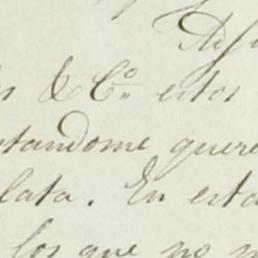 & Cº estos
tandome quere
lata. En esta
los que no